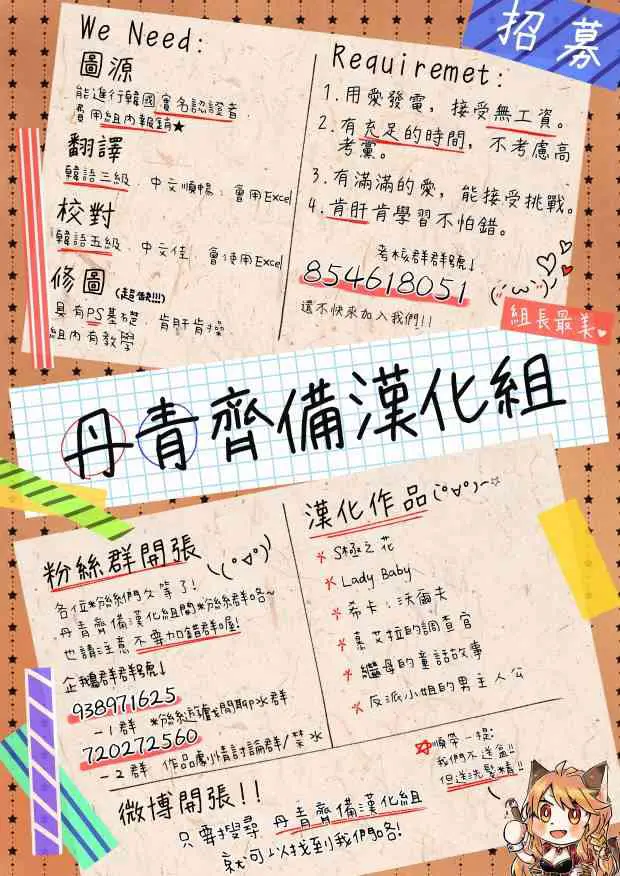 招募
We Need:
圖源
能進行韓國實名認證者
費用組內報銷★
翻譯
韓語三級、中文順暢、會用Excel
校對
韓語五級、中文佳、會使用Excel
修圖(超缺!!!)
具有PS基礎、肯肝肯操
組內有教學
Requiremet:
1.用愛發電，接受無工資。
2.有充足的時間，不考慮高
考黨。
3.有滿滿的愛，能接受挑戰。
4.肯肝肯學習不怕錯。
考核群群號↓
854618051
還不快來加入我們!!
組長最美♥
丹青齊備漢化組
粉絲群開張\(°∀°)
各位*粉絲們久等了!
丹青齊備漢化組開*粉絲群咯~
也請注意不要加錯群喔!
企鵝群群號↓
938971625
-1群 *粉絲遊戲閒聊水群
720272560
-2群 作品劇情討論群/禁水
漢化作品(°∀°)~☆
S極之花
Lady Baby
希卡：沃爾夫
慕艾拉的調查官
繼母的童話故事
反派小姐的男主人公
微博開張!!
只要搜尋 丹青齊備漢化組
就可以找到我們咯!
☆順帶一提:
我們不送盆!!
但送洗髮精!!